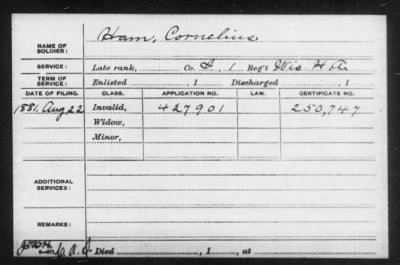 NAME OF SOLDIER: Ham, Cornelius.
SERVICE: Late rank, Co. A, 1 Reg't Wis. H. A.
TERM OF SERVICE: Enlisted , 1 Discharged , 1
DATE OF FILING. CLASS. APPLICATION NO. LAW. CERTIFICATE NO.
1881, Aug 22 Invalid, 427901 250,747
Widow,
Minor,
ADDITIONAL SERVICES:
REMARKS:
Died , 1 , at